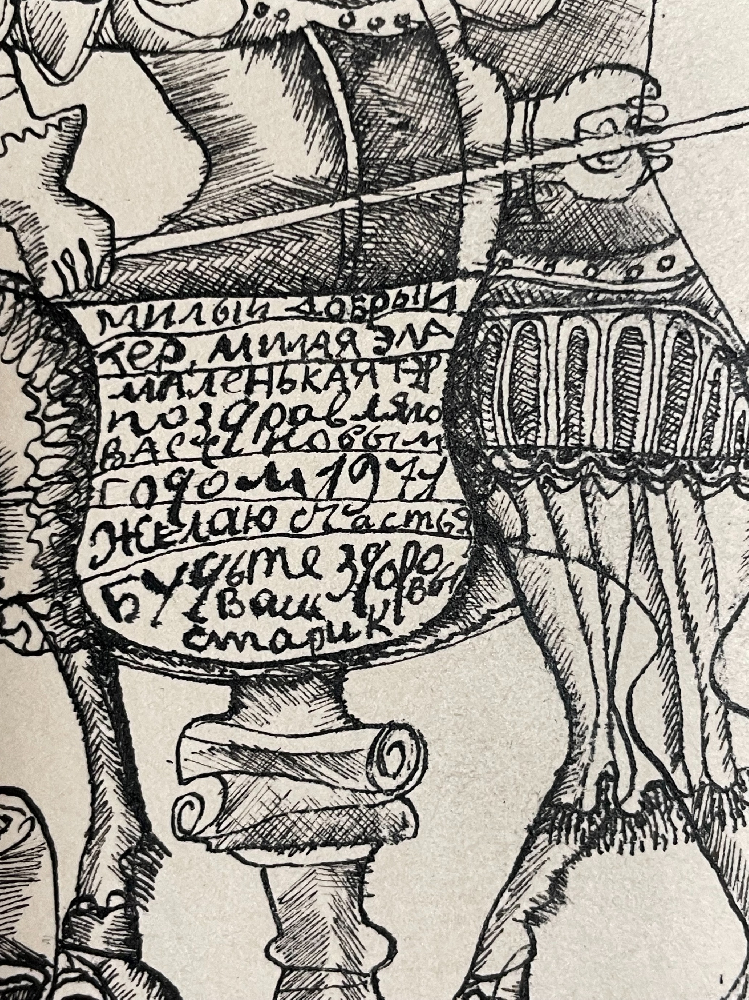 МИЛЫЙ ДОБРЫЙ
ТЕР, МИЛАЯ ЭЛА
МАЛЕНЬКАЯ
поздравляю
ВАС С НОВЫМ
ГОДОМ 1971
ЖЕЛАЮ счастья
БУДЬТЕ ЗДОРО
ВЫ
Ваш
старик